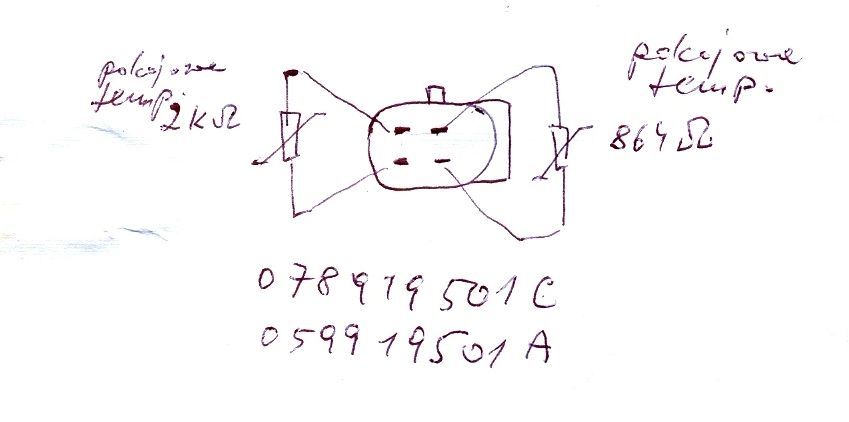 pokojowa
temp.
2kΩ
pokojowa
temp.
864Ω
078919501C
059919501A